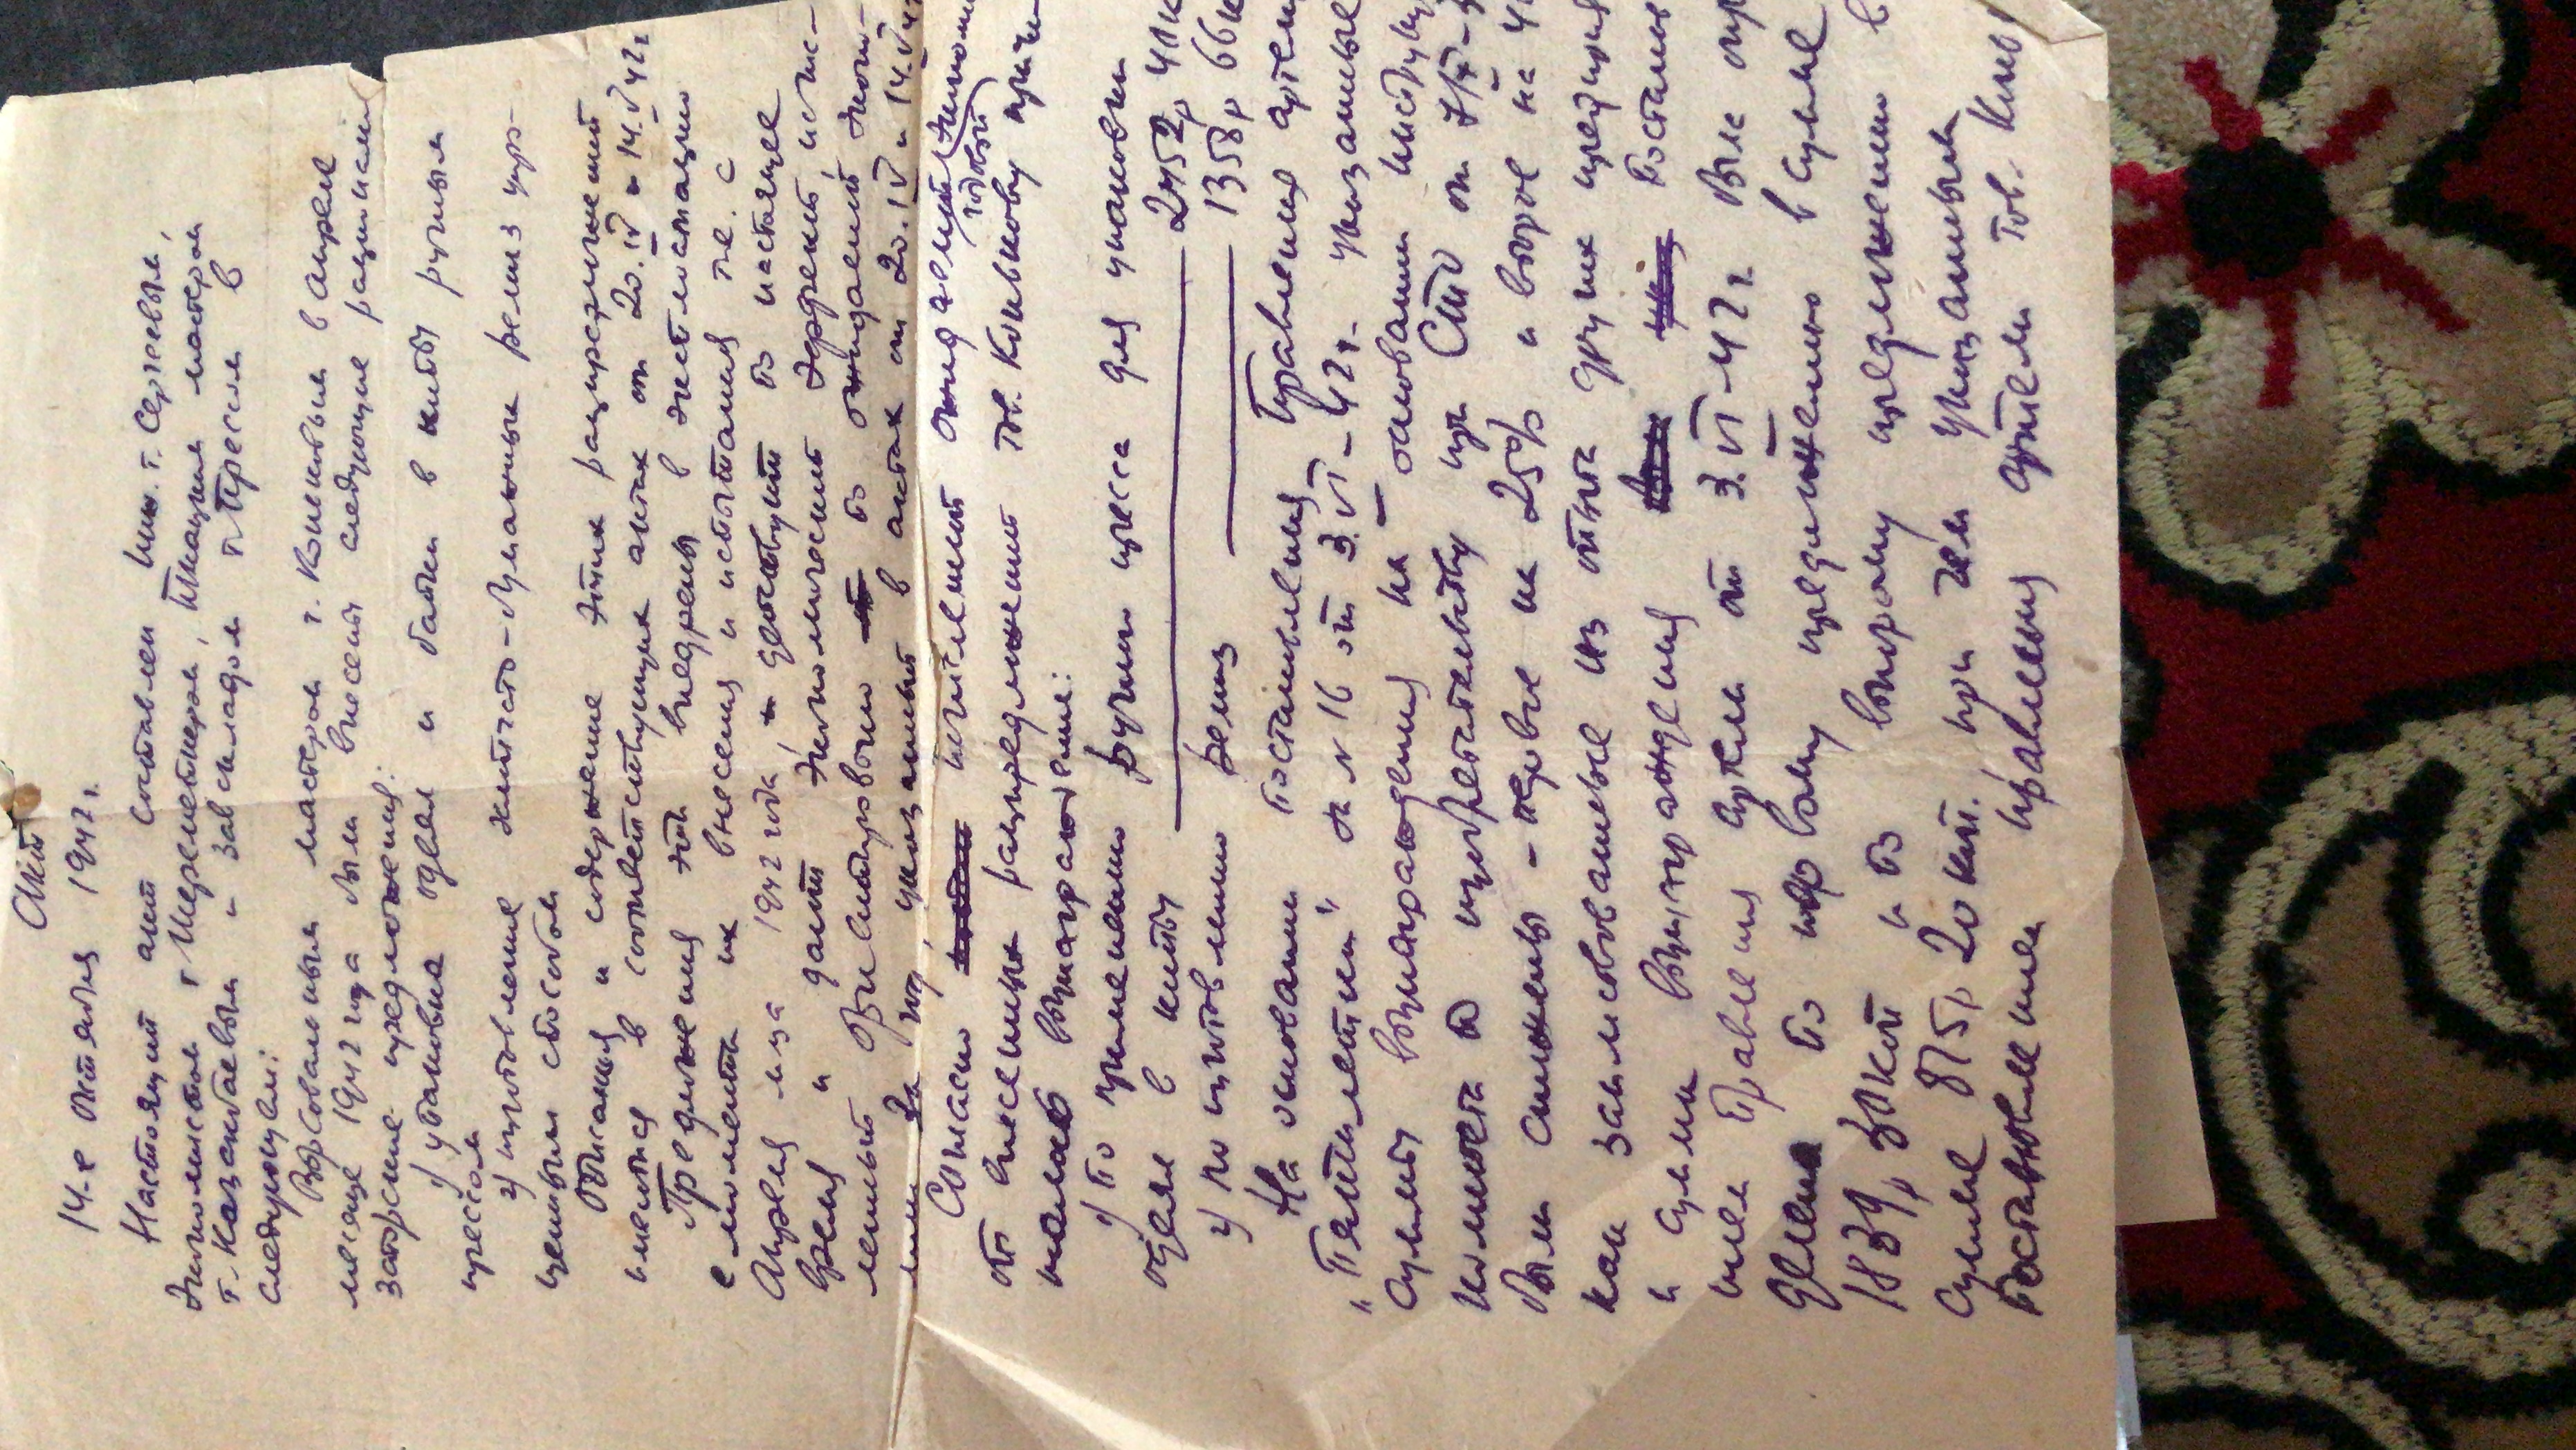 Акт
14-е октября 1942 г.
Настоящий акт составлен инж. т. Сергеевым,
экономистом т Шереметнером, ткацким мастером
т. Казакбаевым и завскладом т. Прессом в
следующем:
Ворсовальным мастером т. Коньковым в Апреле
месяце 1942 года были внесены следующие рационали
заторские предложения:
1) упаковка одеял и батки в кипы ручным
прессом
2) изготовление нитчато-бумажных ремиз упро-
щенным способом
Описания и содержение этих рацпредложений
имеются в соответствующих актах от 20.IV и 14.V 42 г
Предложения эти внедрены в эксплоатацию
с момента их внесения и испытания т.е. с
Апреля м-ца 1942 года, и действуют по настоящее
время и дают экономический эффект, исчис-
ленный ориентировочно по ожидаемой эконо-
мии за год, указанный в актах от 20.IV и 14.V 42
Согласно исчисленной ожидаемой экономи
годовой
от внесенных рацпредложений тов. Конькову причи-
талось вознаграждение:
1) По применению ручного пресса для упаковки
одеял в кипы — 2452р 41к
2) по изготовлению ремиз — 1358р 66к
На основании постановления Правления артели
„Пятилетки" за N 16 от 3.VI-42 г. указанные
суммы вознаграждения на основании инструкц
комитета по изобретательству при СТО от
были снижены - первое на 25% и второе на 4
как заимствованные из опыта других предприя
и сумма вознаграждения Постанов
нием Правления артели от 3.VI-42 г. была опр
делена по первому предложению в сумме
1839р 30 коп и по второму предложению в
сумме 815р 20 коп., при чем указанным
постановлением правления артели тов. Коньк